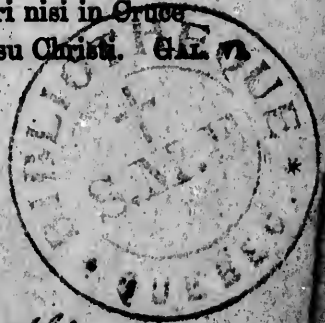 ri nisi in Cruce
su Christi. GAL. VI.
BIBLIOTHEQUE
QUEBEC